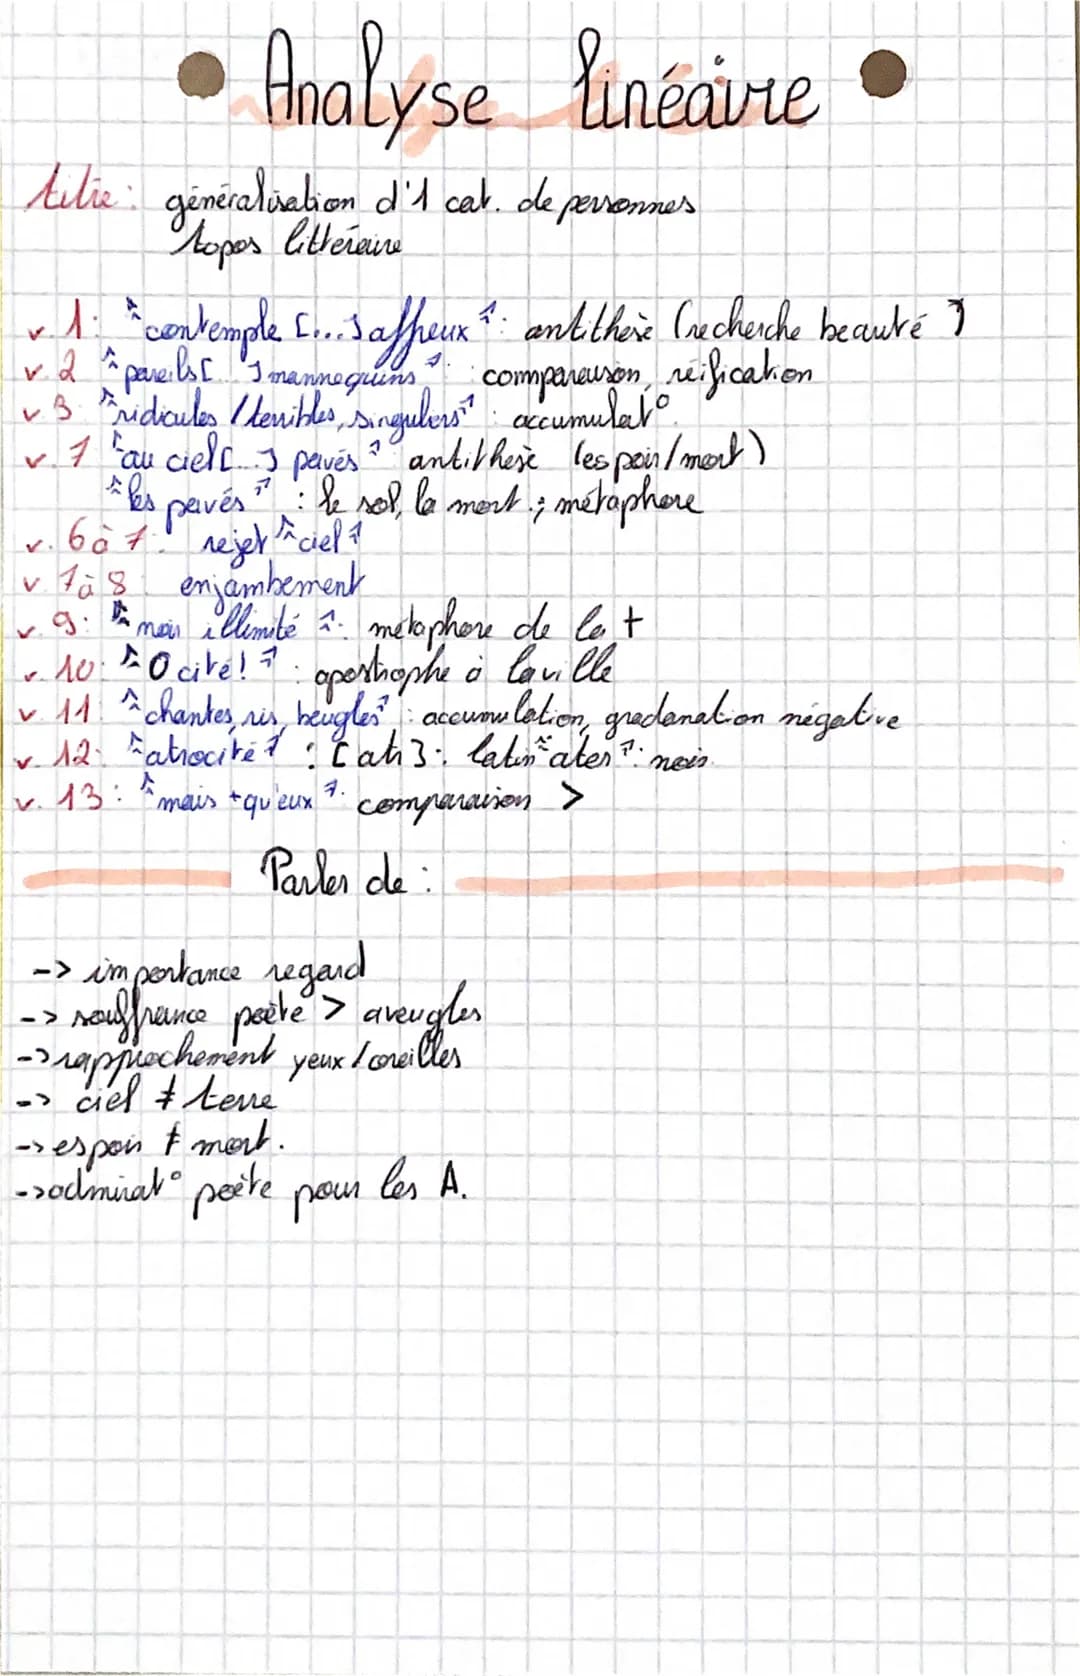 Analyse linéaire
titre : généralisation d'1 cat. de personnes
topos littéraire
v. 1 : "contemple [...] affreux" : antithèse (recherche beauté)
v. 2 "pareils [...] mannequins" : comparaison, réification
v. 3 "ridicules / terribles, singuliers" : accumulat°
v. 7 "au ciel [...] pavés" antithèse (espoir/mort)
"les pavés" : le sol, la mort ; métaphore
v. 6 à 7 : rejet "ciel"
v. 7 à 8 : enjambement
v. 9 : "noir illimité" : métaphore de la †
v. 10 : "O cité !" : apostrophe à la ville
v. 11 "chantes, ris, beugles" : accumulation, gradanation négative
v. 12 : "atrocité" : [atr] : latin "ater" : noir
v. 13 : "mais + qu'eux" : comparaison >
Parler de :
-> importance regard
-> souffrance poète > aveugles
-> rapprochement yeux / oreilles
-> ciel ≠ terre
-> espoir ≠ mort.
-> admirat° poète pour les A.